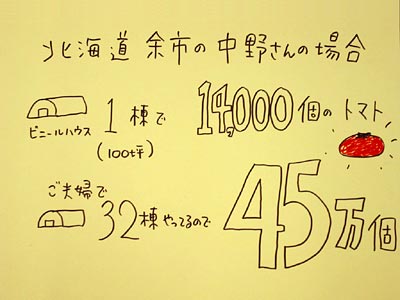 北海道 余市の中野さんの場合
ビニールハウス 1棟で 14,000個のトマト
(100坪)
ご夫婦で
32棟やってるので 45万個